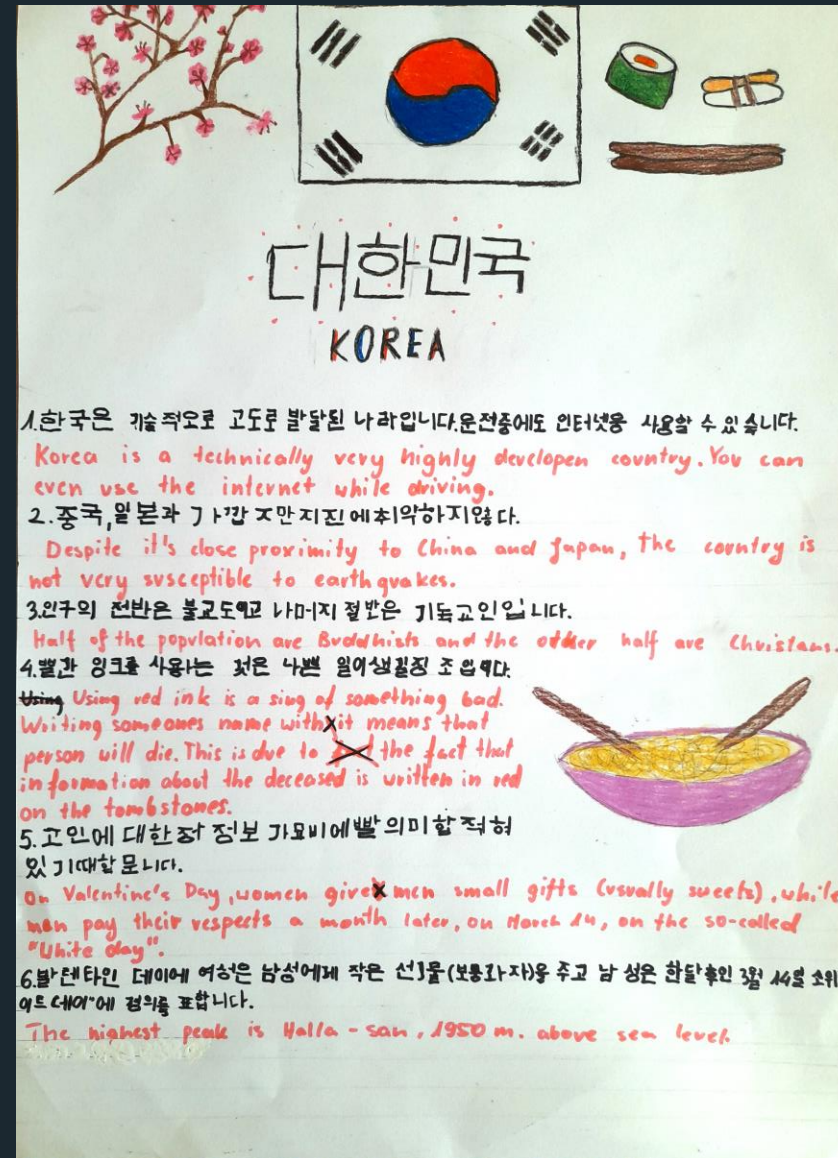 대한민국
KOREA
1.한국은 기술적오로 고도로 발달된 나라입니다.운전중에도 인터넷옹 사용할 수 있 숩니다.
Korea is a technically very highly developen country. You can
even use the internet while driving.
2.중국,일본과 가깝지만지진에취약하지않다.
Despite it's close proximity to China and Japan, the country is
not very susceptible to earthquakes.
3.인구의 전반은 불교도이고 나머지 절반은 기독교인입니다.
Half of the population are Buddhists and the other half are Christians.
4.빨간 잉크를 사용하는 것은 나쁜 일이생길징 조 입니다.
Using Using red ink is a sing of something bad.
Writing someones name with it means that
person will die. This is due to the fact that
information about the deceased is written in red
on the tombstones.
5.고인에 대한 정보 가묘비에빨 의미합 적혀
있 기때합 문니다.
On Valentine's Day, women give men small gifts (usually sweets), while
man pay their respects a month later, on March 14, on the so-called
"White day".
6.발렌타인 데이에 여성은 남성에게 작은 선물(보통과자)을 주고 남 성은 한달후인 3월 14일 소위
이트데이"에 경의를 표합니다.
The highest peak is Halla-san, 1950 m. above sea level.